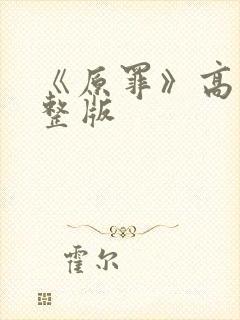 《原罪》高
整版
霍尔